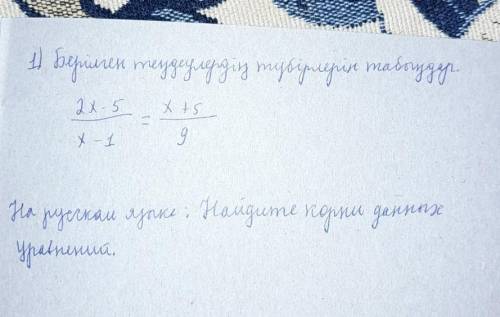 1) Берілген теңдеулердің түбірлерін табыңдар.
2x-5 / x-1 = x+5 / 9
На русскам языке: Найдите корни данных
уравнений.